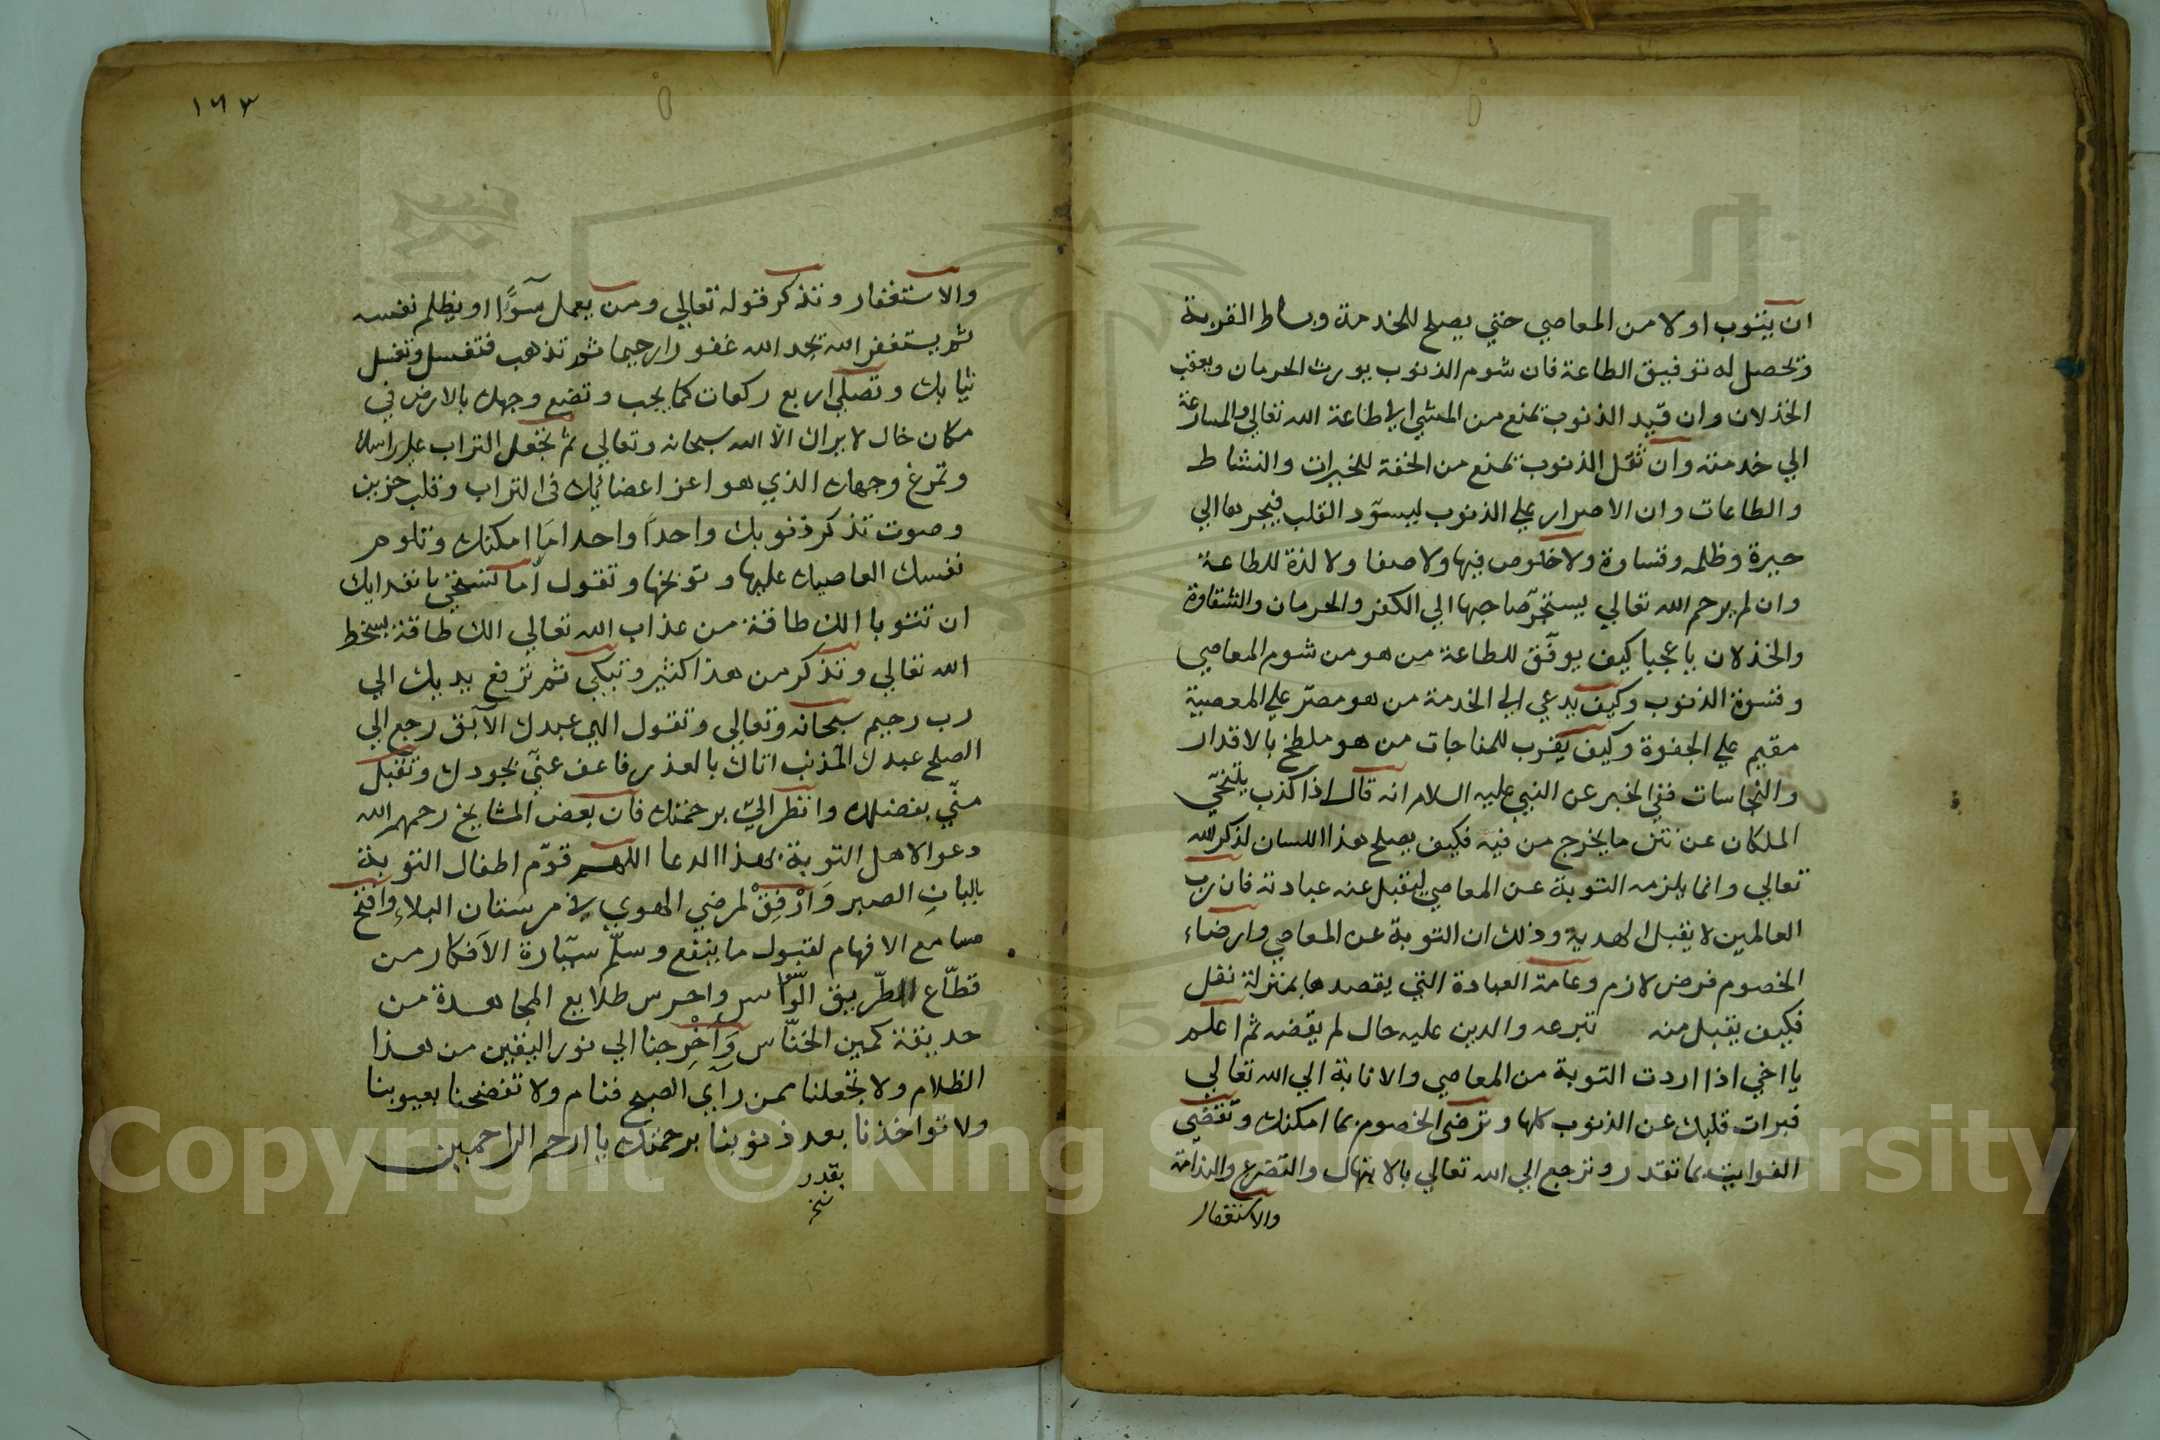 ان يتوب اولا من المعاصي حتي يصلح للخدمة وبساط القربة
وتحصل له توفيق الطاعة فان شوم الذنوب يورث الحرمان ويعقب
الخذلان وان قيد الذنوب تمنع من المشي الي طاعة الله تعالي والمسارعة
الي خدمته وان ثقل الذنوب تمنع من الخفة للخيرات والنشاط
والطاعات وان الاصرار علي الذنوب ليسوّد القلب فيجرها الي
حيرة وظلمه وقساوة ولا خلوص فيها ولا صفا ولا لذة للطاعة
وان لم يرحم الله تعالي يستجرّ صاحبها الي الكفر والحرمان والشقاوة
والخذلان يا عجبا كيف يوفّق للطاعة من هو من شوم المعاصي
وقسوة الذنوب وكيف يدعي الي الخدمة من هو مصرّ علي المعصية
مقيم علي الجفوة وكيف يقرب للمناجات من هو ملطخ بالاقذار
والنجاسات ففي الخبر عن النبي عليه السلام انه قال اذا كذب يتنحّي
الملكان عن نتن ما يخرج من فيه فكيف يصلح هذا اللسان لذكر الله
تعالي وانما يلزمه التوبة عن المعاصي ليتقبل عنه عبادته فان رب
العالمين لا يقبل الهدية وذلك ان التوبة عن المعاصي وارضاء
الخصوم فرض لازم وعامة العبادة التي يقصدها بمنزلة نفل
فكيف يقبل منه تبرعه والدين عليه حال لم يقضه ثم اعلم
يا اخي اذا اردت التوبة من المعاصي والانابة الي الله تعالي
فبرات قلبك عن الذنوب كلها وترضي الخصوم بما امكنك وتقضي
الفوايت بما تقدر وترجع الي الله تعالي بالابتهال والتضرع والندامة
والاستغفار
١٦٣
والاستغفار وتذكر قوله تعالي ومن يعمل سوءًا او يظلم نفسه
ثم يستغفر الله يجد الله غفورا رحيما ثم تذهب فتغسل وتغسل
ثيابك وتصلي اربع ركعات كما يجب وتضع وجهك بالارض في
مكان خال لا يراك الا الله سبحانه وتعالي ثم تجعل التراب علي راسك
وتمرغ وجهك الذي هو اعز اعضائك في التراب وقلب حزين
وصوت تذكر ذنوبك واحداً واحدا ما امكنك وتلوم
نفسك العاصيك عليها وتوبخها وتقول أما تستحي يا نفس
ان تتوبا الك طاقة من عذاب الله تعالي الك طاقة بسخط
الله تعالي وتذكر من هذا كثير وتبكي ثم ترفع يديك الي
رب رحيم سبحانه وتعالي وتقول الهي عبدك الآبق رجع الي
الصلح عبدك المذنب اتاك بالعذر فاعف عني بجودك وتقبل
منّي بفضلك وانظر اليّ برحمتك فان بعض المشايخ رحمهم الله
دعوا لاهل التوبة بهذا الدعا اللهم قوّم اطفال التوبة
بالبان الصبر وَارْفِقْ لمرضي الهوي في مرستان البلاء وافتح
مسامع الافهام لقبول ما ينفع وسلّم سيّارة الأفكار من
قطّاع الطّريق الوّاس واحرس طلايع المجاهدة من
حديقة كمين الخنّاس وَأَخْرِجنا الي نور اليقين من هذا
الظلام ولا تجعلنا ممن رأي الصبح فنام ولا تفضحنا بعيوبنا
ولا تواخذنا بعد ذنوبنا برحمتك يا ارحم الراحمين
بقدر
نخ
Copyright © King Saud University
1957